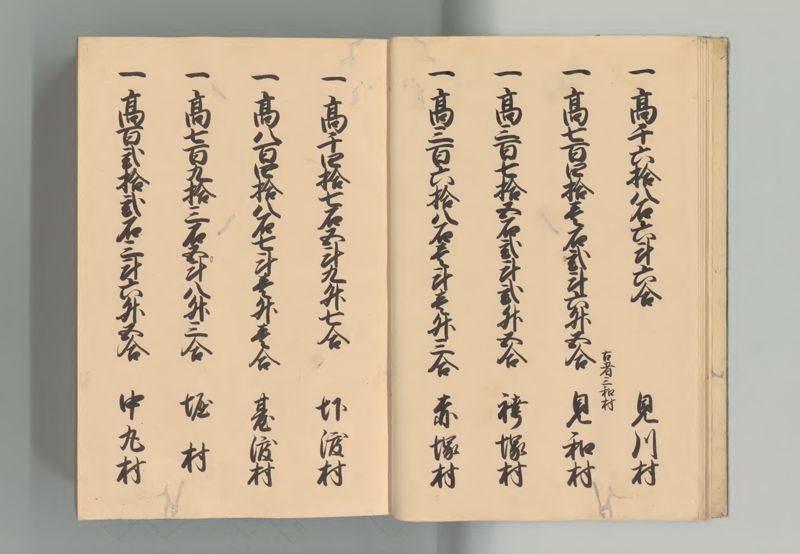 一 高千六拾八石六斗六合 見川村
古者三和村
一 高七百四拾壱石弐斗六升五合 見和村
一 高三百七拾五石弐斗弐升五合 袴塚村
一 高三百六拾八石壱斗壱升三合 赤塚村
一 高千四拾七石五斗九升七合 圷渡村
一 高八百四拾八石七斗壱升壱合 臺渡村
一 高七百九拾三石五斗八升三合 堀村
一 高百弐拾弐石三斗六升五合 中丸村